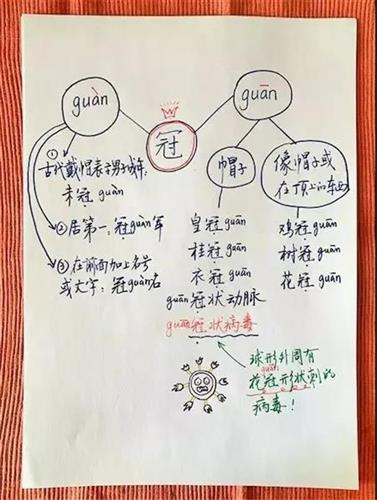 guàn
冠
guān
①
古代戴帽表示男子成年:
未冠 guàn
②居第一:冠guàn军
③在前面加上名号
或文字:冠guàn名
帽子
皇冠 guān
桂冠 guān
衣冠 guān
guān冠状动脉
guān冠状病毒
像帽子或
在顶上的东西
鸡冠guān
树冠guān
花冠guān
球形外周有
guān
花冠形状刺的
病毒!